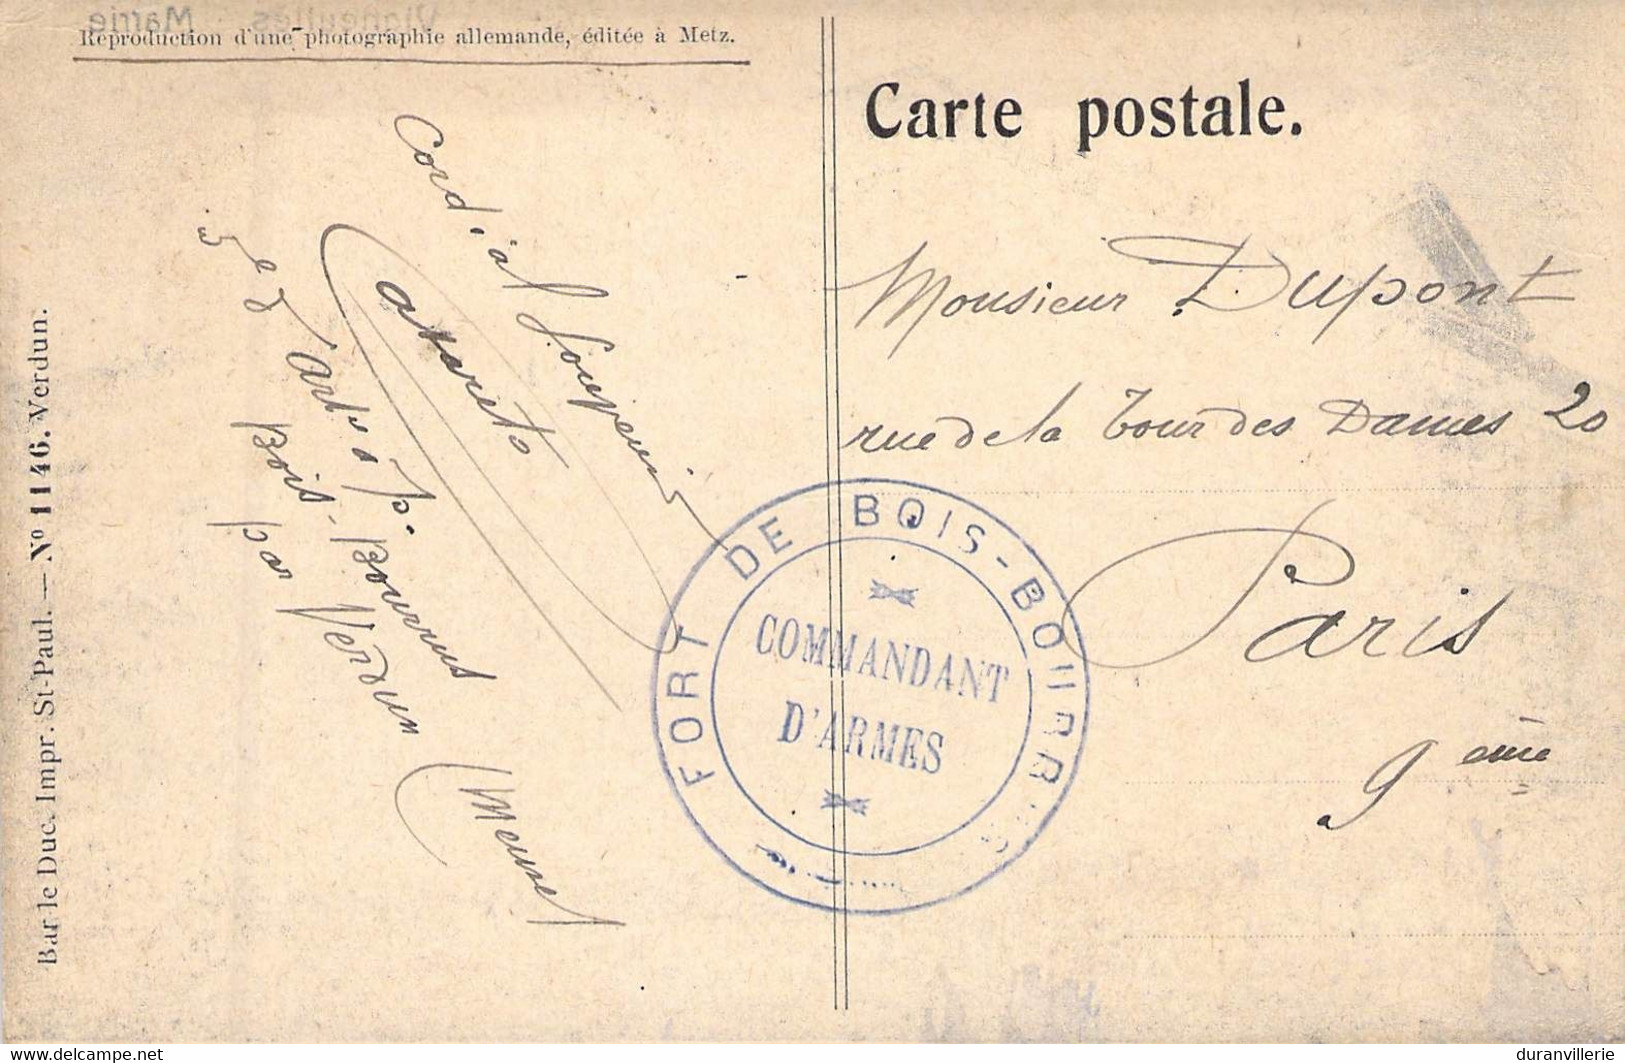 Vigneulles. Mairie
Reproduction d'une photographie allemande, éditée à Metz.
Carte postale.
Bar le Duc. Impr. St-Paul. — Nº 1146. Verdun.
Cordial Souvenir
5e d'art. à p.
Bois-Bourrus
par Verdun
(Meuse)
Monsieur Dupont
rue de la Tour des Dames 20
Paris
9ème
FORT DE BOIS-BOURRUS
COMMANDANT
D'ARMES
www.delcampe.net
duranvillerie